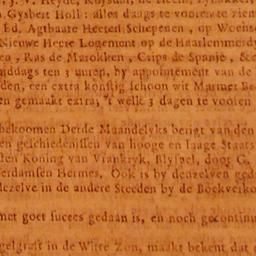 J. V. Heyde, Ruysdal, de Heem,
Gysbert Holl: alles daags te vooren te zien
Ed. Agtbaare Heeren Schepenen, op Woens
Nieuwe Heere Logement op de Haarlemmerdy
ca, Ras de Marokken, Crips de Spanje, &c
middags ten 3 uuren, by appointement van de
den, een extra konstig schoon wit Marmer Be
en gemaakt extra, 't welk 3 dagen te vooren
bekoomen Derde Maandelyks berigt van den
en geschiedenissen van hooge en laage Staats
den Koning van Vrankryk, Blyspel, door C.
terdamsen Hermes. Ook is by denzelven ged
dezelve in de andere Steeden by de Boekverko
met goet succes gedaan is, en noch gecontinu
gelgraft in de Witte Zon, maakt bekent dat